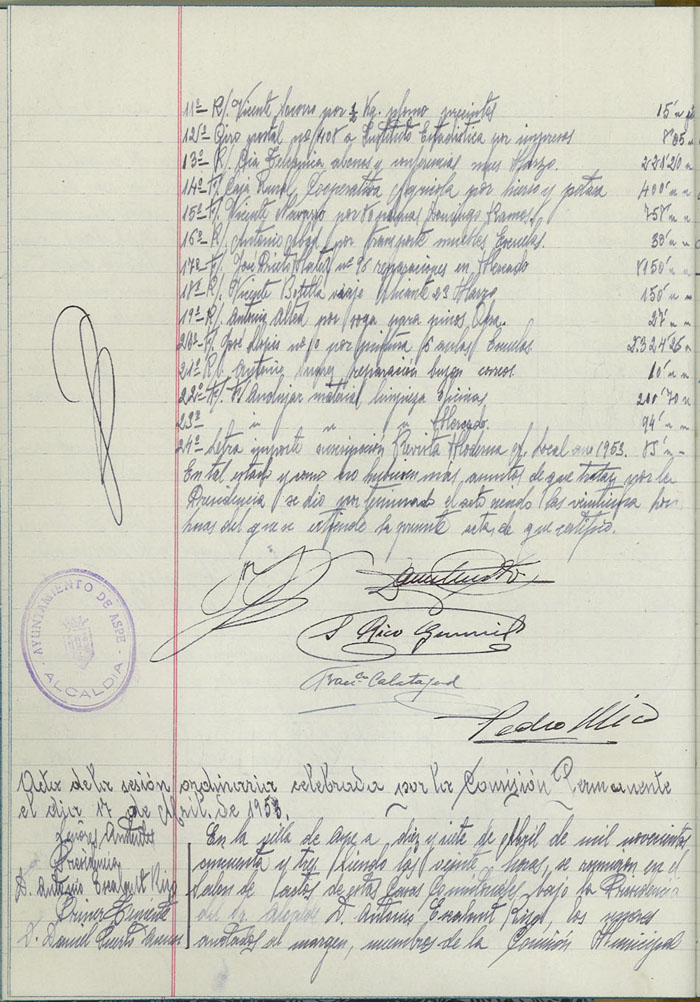 11º R/. Vicente Socorro por ½ Kg. plomo precintos 15'"
12º Giro postal nº 408 a Instituto Estadística por impresos 8'05
13º R/. Cía Telefónica abonos y conferencias mes Marzo. 228'20
14º F/. Caja Rural, Cooperativa Agrícola por hierro y potasa 400'"
15º F/. Vicente Navarro por Domingo Ramos. 758'"
16º R/. Antonio Abad por transporte muebles Escuelas. 30'"
17º F/. José Prieto nº 96 reparaciones en Mercado 8150'"
18º R/. Vicente Botella viaje Alicante 23 Marzo 150'"
19º R/. Antonio Alted por soga para pinos 27'"
20º F/. José nº 10 por pintura 5 aulas Escuelas 2.324'25
21º R/. Antonio reparación buzón correos. 10'"
22º F/. Andújar material limpieza oficinas 200'70
23º " " " Mercado. 94'"
24º Letra importe suscripción Revista Moderna Local año 1953. 85'"
En tal estado y como no hubiesen más asuntos de que tratar, por la
Presidencia se dio por terminado el acto siendo las veintiuna
horas del que se extiende la presente acta, de que certifico.
J. Rico
Franco Calatayud
Pedro Mico
AYUNTAMIENTO DE ASPE
ALCALDIA
Acta de la sesión ordinaria celebrada por la Comisión Permanente
el día 17 de Abril de 1953.
Señores Asistentes
Presidencia
D. Antonio Escalant Rizo
Primer Teniente
D. Daniel Puerto
En la villa de Aspe a diez y siete de Abril de mil novecientos
cincuenta y tres siendo las veinte horas, se reunieron en el
Salon de actos de estas Casas Consistoriales bajo la Presidencia
del Sr. Alcalde D. Antonio Escalant Rizo, los señores
anotados al margen, miembros de la Comisión Municipal